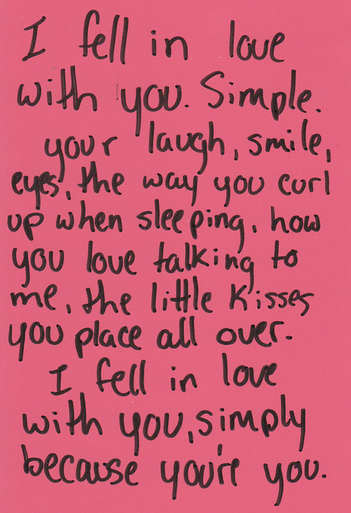 I fell in love
with you. Simple.
your laugh, smile,
eyes, the way you curl
up when sleeping, how
you love talking to
me, the little kisses
you place all over.
I fell in love
with you, simply
because you're you.